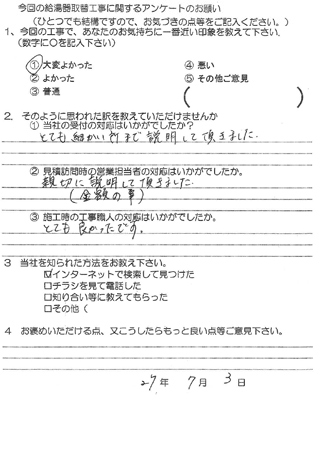 今回の給湯器取替工事に関するアンケートのお願い
（ひとつでも結構ですので、お気づきの点等をご記入ください。）
1、今回の工事で、あなたのお気持ちに一番近い印象を教えて下さい.
（数字に○を記入下さい）
① 大変よかった ④ 悪い
② よかった ⑤ その他ご意見
③ 普通 （ ）
2. そのように思われた訳を教えていただけませんか
① 当社の受付の対応はいかがでしたか？
とても細かい所まで説明して頂きました.
② 見積訪問時の営業担当者の対応はいかがでしたか。
親切に説明して頂きました.
（金額の事）
③ 施工時の工事職人の対応はいかがでしたか。
とても良かったです。
3 当社を知られた方法をお教え下さい。
☑インターネットで検索して見つけた
□チラシを見て電話した
□知り合い等に教えてもらった
□その他（
4 お褒めいただける点、又こうしたらもっと良い点等ご意見下さい。
27年 7月 3日